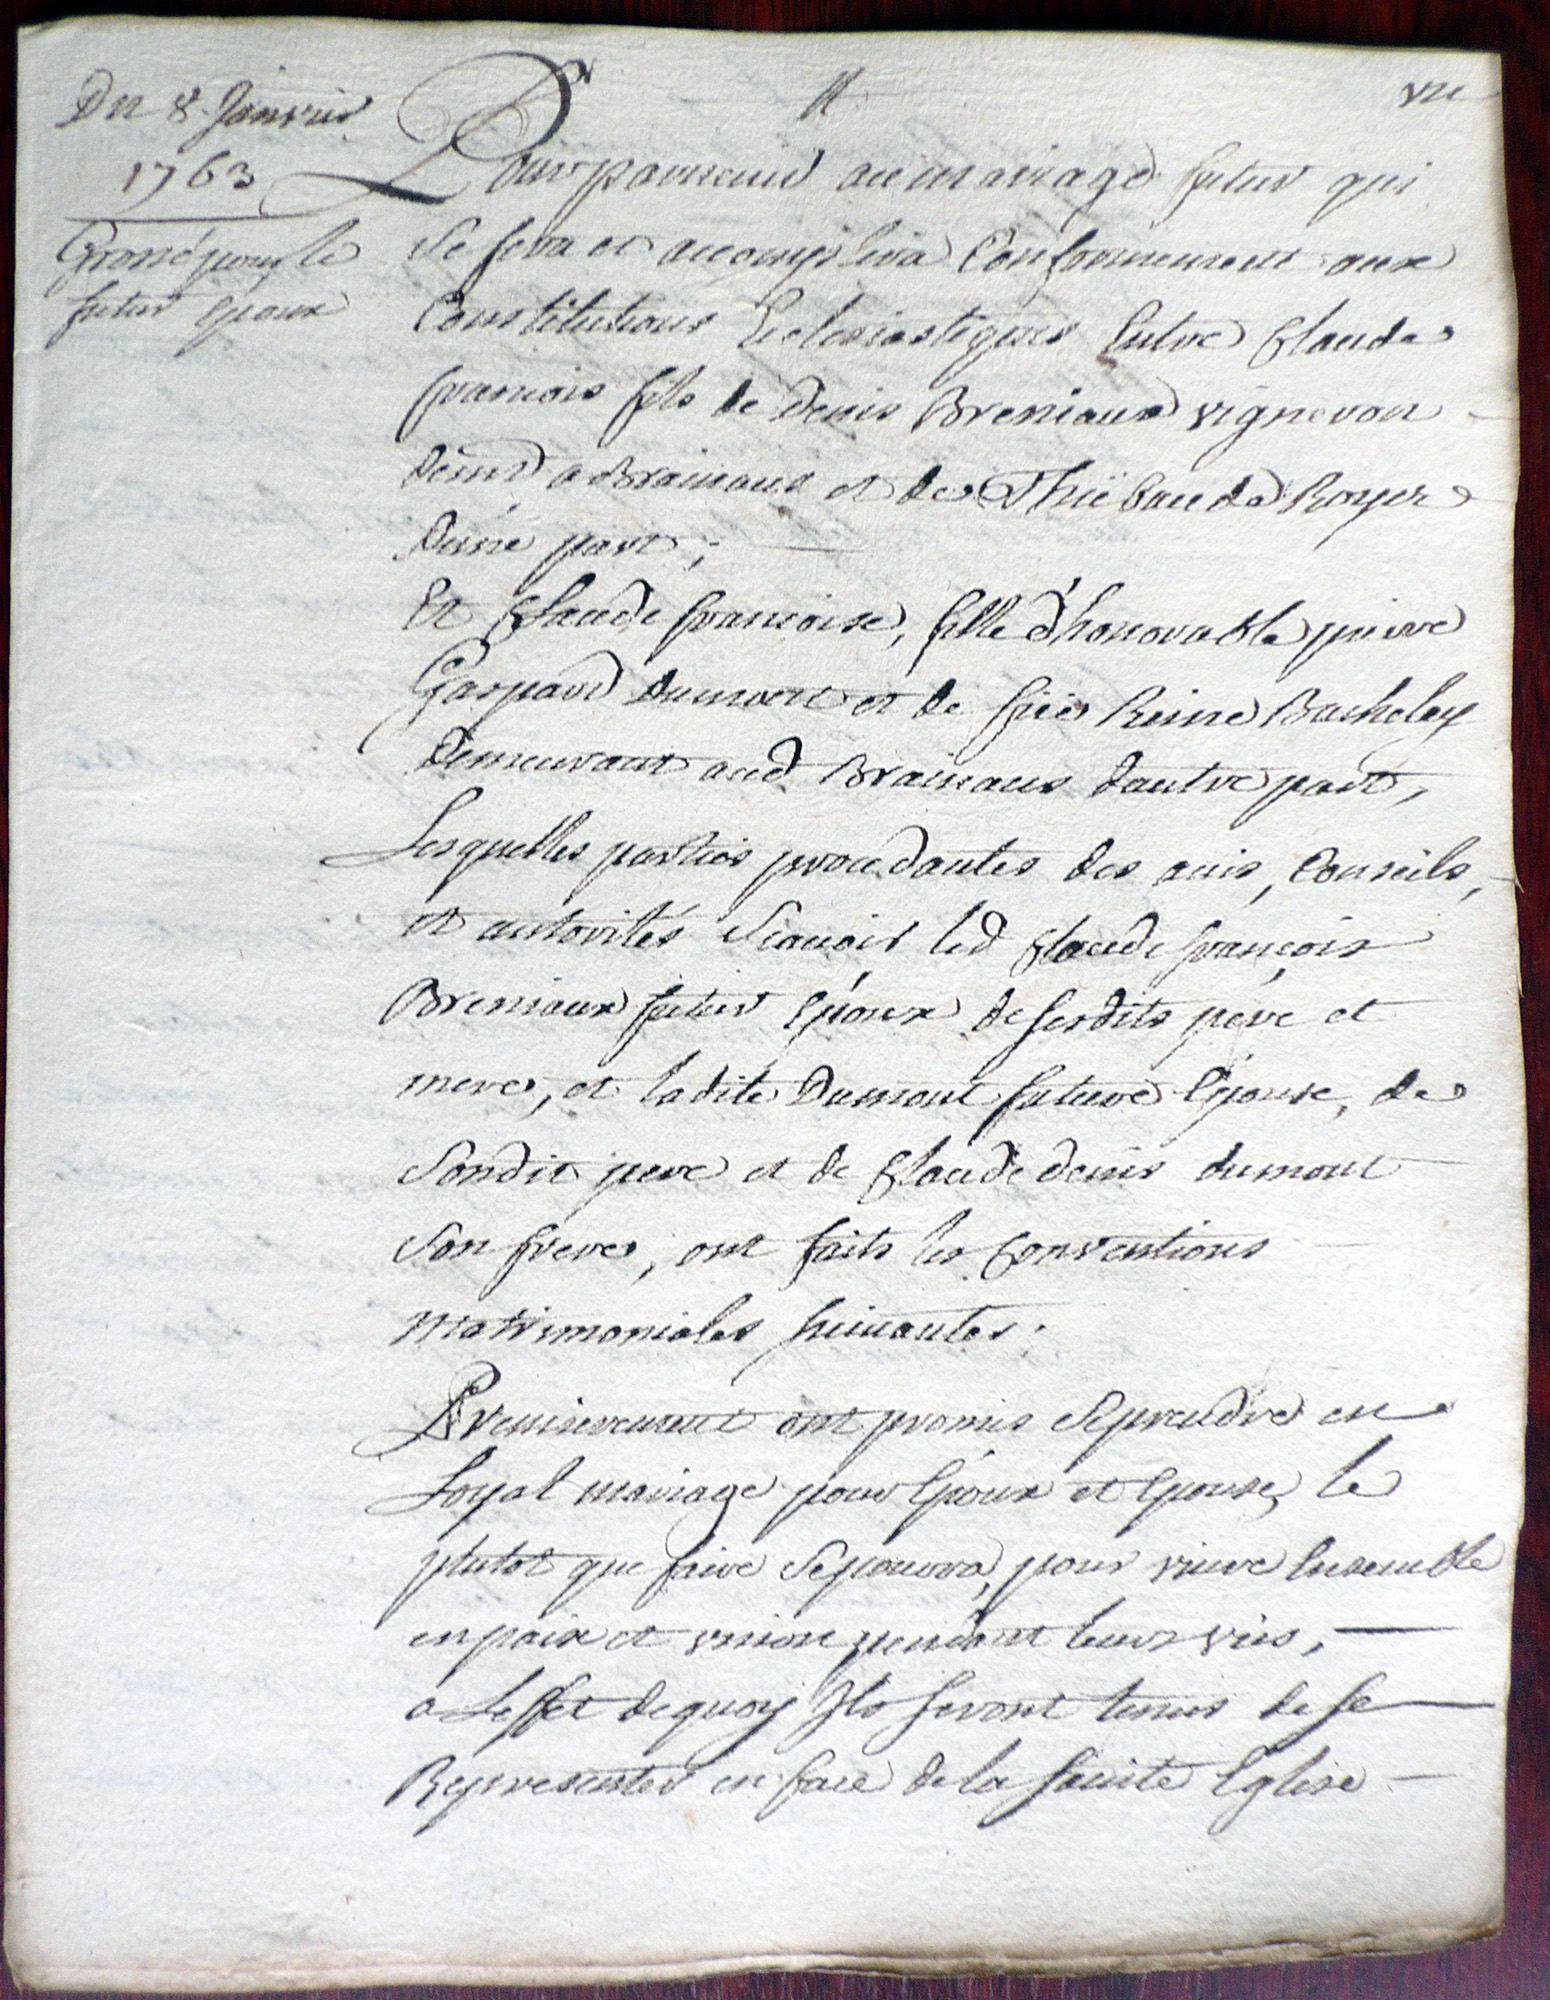 Du 8. Janvier
1763
Grossé pour le
futur Epoux
Pour parvenir au mariage futur qui
Se fera et accomplira Conformement aux
Constitutions Eclesiastiques Entre Claude
francois fils de denis Breniaux vigneron
demt a Brainans et de Thiebaude Royer
dune part ;
Et Claude francoise, fille d'honorable pierre
Gaspard dumont et de fue Reine Bacheley
demeurant aud Brainans dautre part,
Lesquelles parties procedantes des avis, Conseils,
et autorités Scavoir led Claude françois
Breniaux futur Epoux de sesdits pere et
mere, et ladite Dumont future Epouse, de
Sondit pere et de Claude denis dumont
Son frere, ont faits les Conventions
Matrimoniales suivantes.
Premierement ont promis Seprendre en
Loyal mariage pour Epoux et Epouse, le
plutot que faire Sepourra, pour vivre Ensemble
en paix et union pendant leurs vies,
a Leffet dequoy Ils seront tenus de se
Representer en face de la sainte Eglise